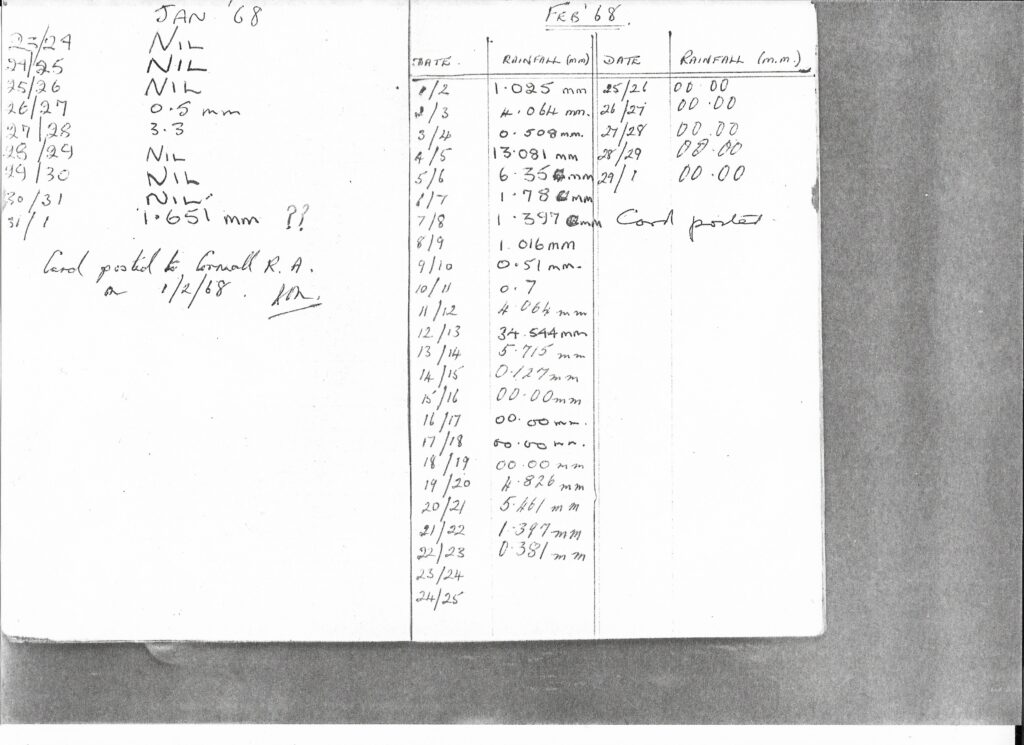 JAN '68
23/24 NIL
24/25 NIL
25/26 NIL
26/27 0.5 mm
27/28 3.3
28/29 NIL
29/30 NIL
30/31 NIL
31/1 1.651 mm ??
Card posted to Cornwall R.A.
on 1/2/68.
FEB '68.
DATE. RAINFALL (mm) DATE RAINFALL (m.m.)
1/2 1.025 mm 25/26 00.00
2/3 4.064 mm. 26/27 00.00
3/4 0.508 mm. 27/28 00.00
4/5 13.081 mm 28/29 00.00
5/6 6.35 mm 29/1 00.00
6/7 1.78 mm
7/8 1.397 mm Card posted
8/9 1.016 mm
9/10 0.51 mm.
10/11 0.7
11/12 4.064 mm
12/13 34.544 mm
13/14 5.715 mm
14/15 0.127 mm
15/16 00.00 mm
16/17 00.00 mm.
17/18 00.00 mm.
18/19 00.00 mm
19/20 4.826 mm
20/21 5.461 mm
21/22 1.397 mm
22/23 0.381 mm
23/24
24/25